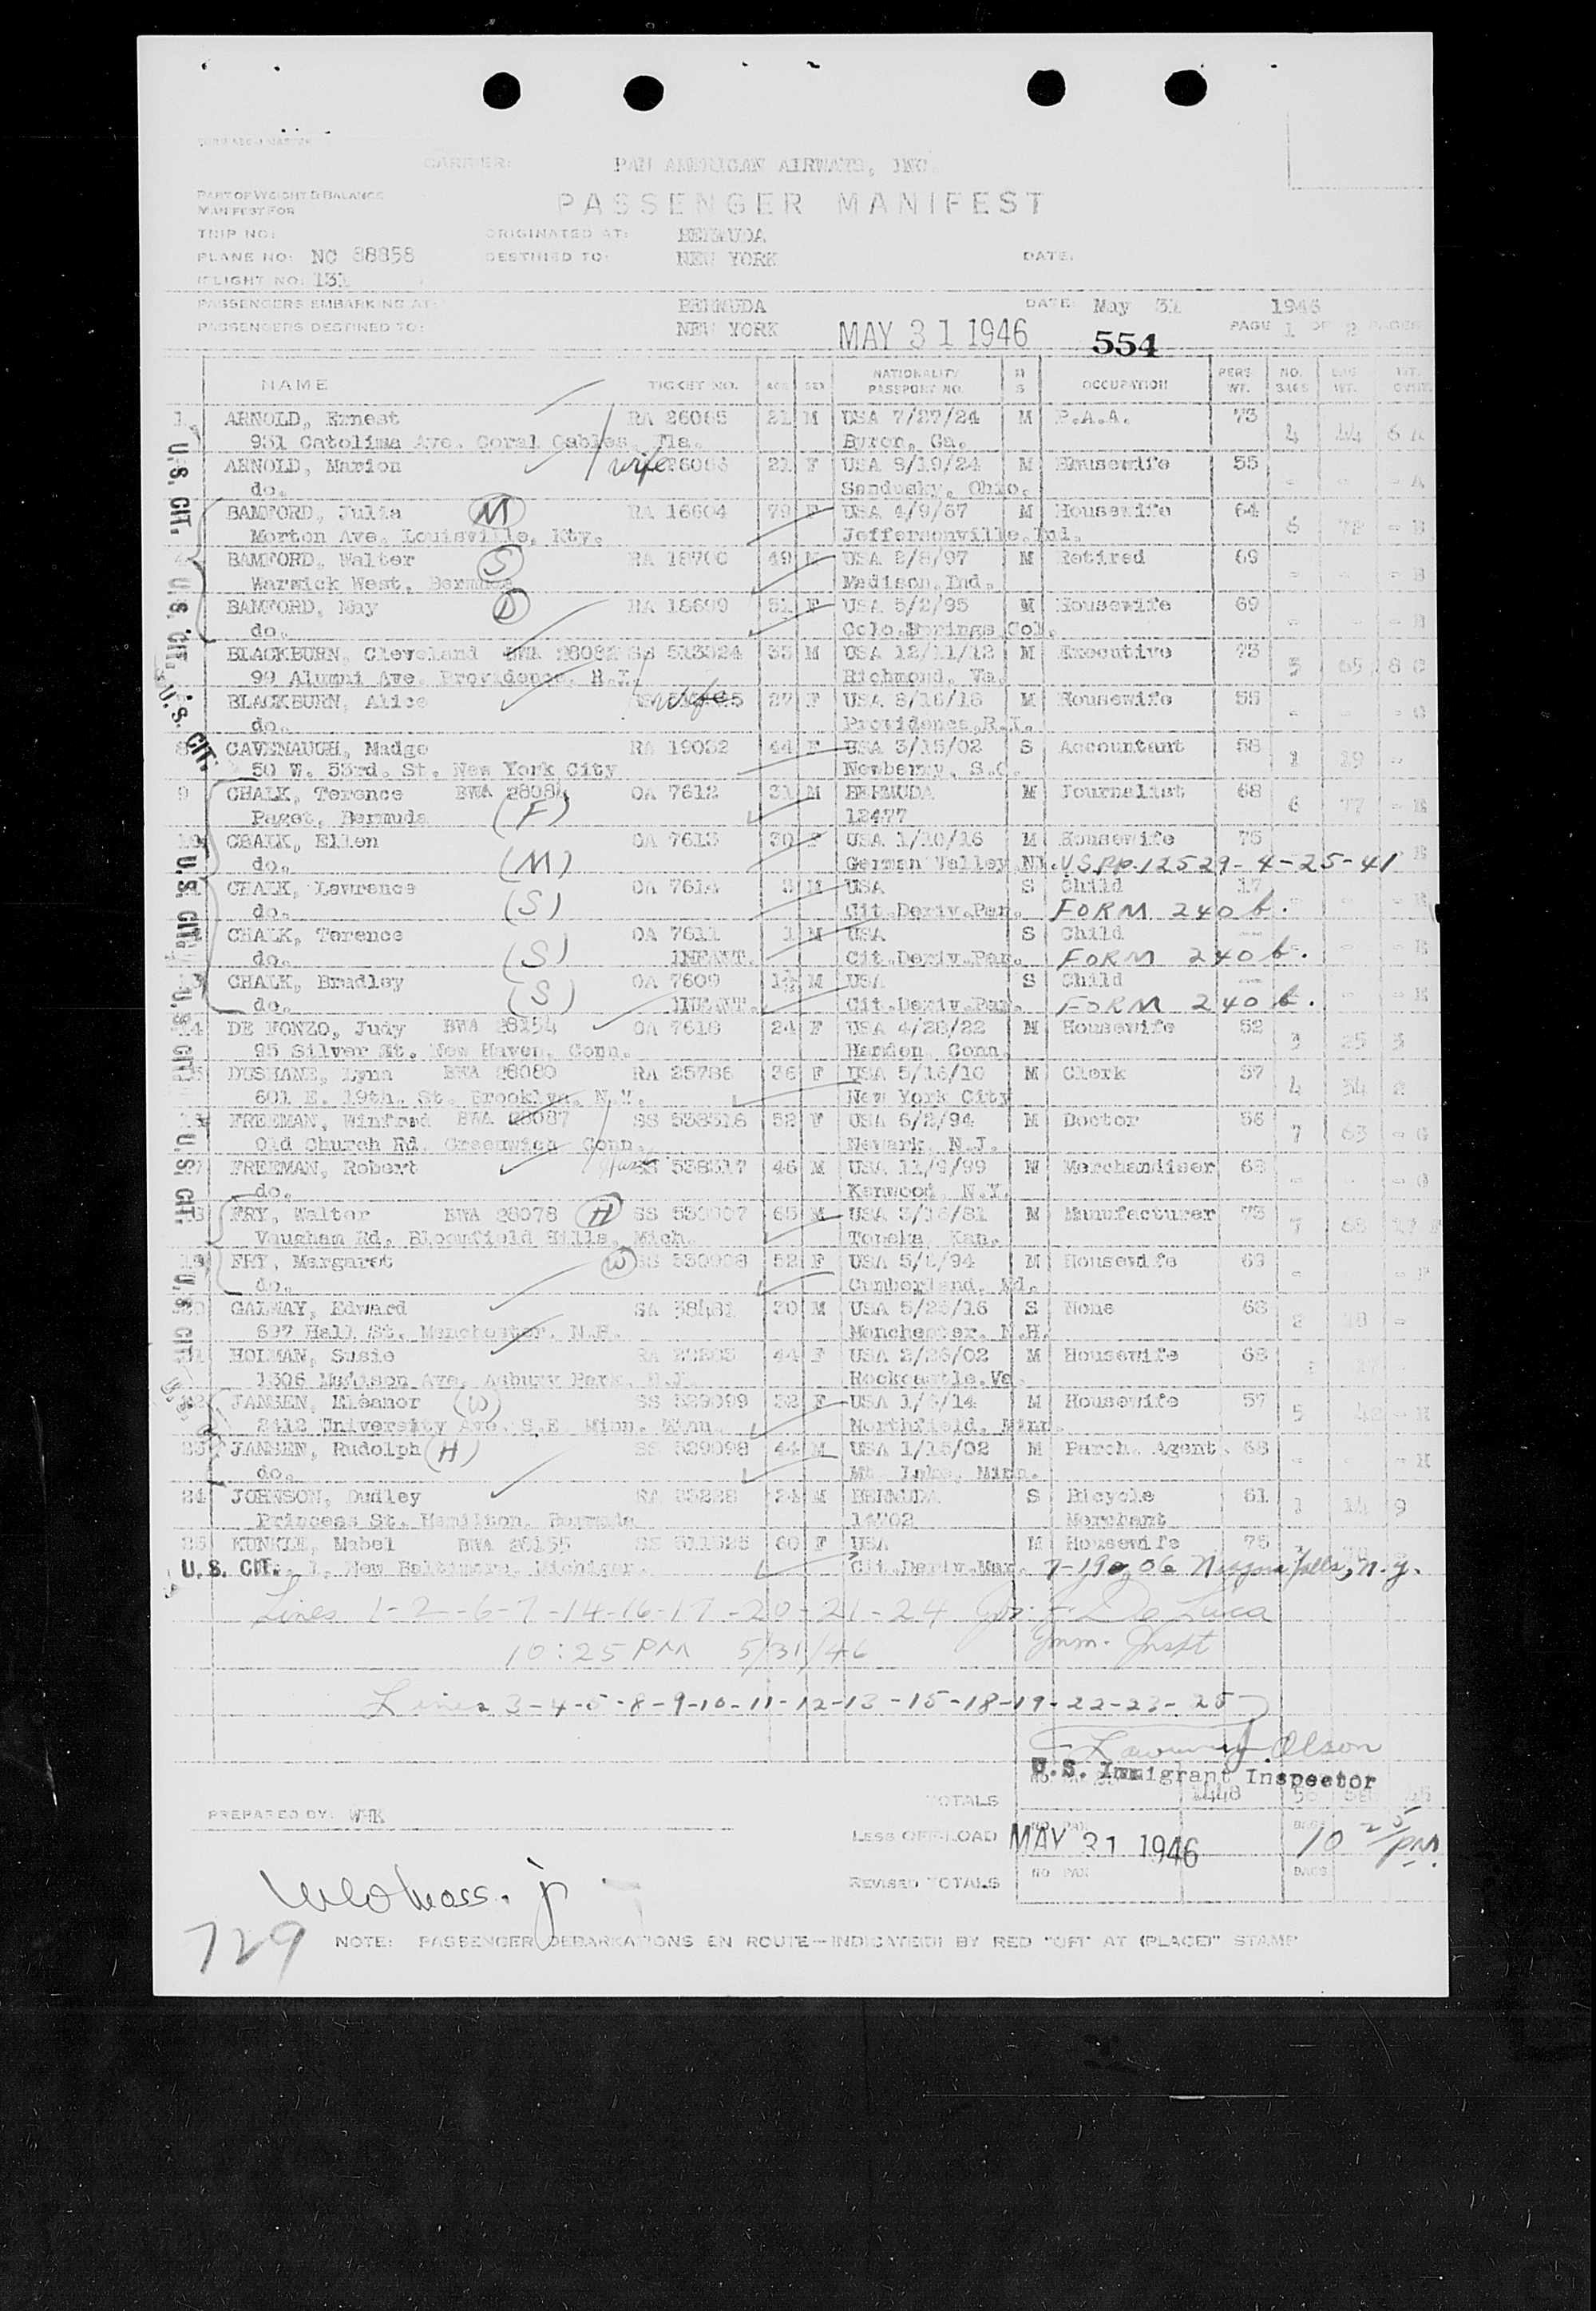 CARRIER: PAN AMERICAN AIRWAYS, INC.
PART OF WEIGHT & BALANCE
MANIFEST FOR
PASSENGER MANIFEST
TRIP NO: ORIGINATED AT: BERMUDA
PLANE NO: NC 88858 DESTINED TO: NEW YORK DATE:
FLIGHT NO: 131
PASSENGERS EMBARKING AT: BERMUDA DATE: May 31 1946
PASSENGERS DESTINED TO: NEW YORK MAY 31 1946 554 PAGE 1 OF 2 PAGES
NAME TICKET NO. AGE SEX NATIONALITY PASSPORT NO. M S OCCUPATION PERS WT. NO. BAGS BAG WT.
1 ARNOLD, Ernest RA 26065 21 M USA 7/27/24 M P.A.A. 73
931 Catolima Ave. Coral Gables, Fla. Byron, Ga. 4 44 6 A
ARNOLD, Marion wife 21 F USA 9/19/24 M Housewife 55
do. Sandusky, Ohio. - - - A
BAMFORD, Julia (M) RA 16604 79 F USA 4/9/67 M Housewife 64
Morton Ave. Louisville, Kty. Jeffersonville, Ind. 6 72 - B
4 BAMFORD, Walter (S) RA 18700 49 M USA 2/8/97 M Retired 69
Warwick West, Bermuda Madison, Ind. - - - B
BAMFORD, May (D) RA 18699 51 F USA 5/2/95 M Housewife 69
do. Colo. Springs, Col. - - - B
BLACKBURN, Cleveland BWA 28082 SS 513024 33 M USA 12/11/12 M Executive 73
99 Alumni Ave. Providence, R.I. Richmond, Va. 3 65 8 C
BLACKBURN, Alice wife 27 F USA 8/16/18 M Housewife 55
do. Providence, R.I. - - - C
8 CAVENAUGH, Madge RA 19032 44 F USA 3/15/02 S Accountant 58
50 W. 53rd. St. New York City Newberry, S.C. 1 19 -
9 CHALK, Terence BWA 28084 OA 7612 31 M BERMUDA M Journalist 68
Paget, Bermuda (F) 12477 6 77 - E
10 CHALK, Ellen OA 7613 30 F USA 1/10/16 M Housewife 75
do. (M) German Valley, NY. U S PP. 12529-4-25-41 E
CHALK, Lawrence OA 7614 3 M USA S Child 17
do. (S) Cit.Deriv.Par. FORM 240 b. - - E
CHALK, Terence OA 7611 1 M USA S Child --
do. (S) INFANT. Cit.Deriv.Par. FORM 240 b. - - E
CHALK, Bradley OA 7609 M USA S Child --
do. (S) INFANT. Cit.Deriv.Par. FORM 240 b. - - E
14 DE FONZO, Judy BWA 28154 OA 7618 24 F USA 4/28/22 M Housewife 52
95 Silver St. New Haven, Conn. Hamden, Conn. 3 25 3
DUSHANE, Lynn BWA 28080 RA 25786 36 F USA 5/16/10 M Clerk 57
601 E. 19th. St. Brooklyn, N.Y. New York City 4 54 2
FREEMAN, Winfred BWA 28087 SS 538516 52 F USA 6/2/94 M Doctor 56
Old Church Rd. Greenwich Conn. Newark, N.J. 7 63 - G
FREEMAN, Robert 538517 46 M USA 11/9/99 M Merchandiser 68
do. Kenwood, N.Y. - - - G
FRY, Walter BWA 28078 (H) SS 530907 65 M USA 3/16/81 M Manufacturer 73
Vaughan Rd. Bloomfield Hills, Mich. Topeka, Kan. 7 68 17 F
FRY, Margaret (W) SS 530908 52 F USA 5/8/94 M Housewife 69
do. Cumberland, Md. - - F
GALWAY, Edward SA 38431 30 M USA 5/25/16 S None 68
637 Hall St. Manchester, N.H. Manchester, N.H. 2
HOLMAN, Susie 44 F USA 2/26/02 M Housewife 68
1306 Madison Ave. Asbury Park, N.J. Rockcastle, Va.
22 JANSEN, Eleanor (W) SS 529099 32 F USA 1/6/14 M Housewife 57
2412 University Ave. S.E. Minn. Minn. Northfield, Minn. 5 42 - H
23 JANSEN, Rudolph (H) SS 529098 44 M USA 1/15/02 M Purch. Agent 68
do. Mt. Lake, Minn. - - - H
24 JOHNSON, Dudley RA 35228 24 M BERMUDA S Bicycle 61
Princess St. Hamilton, Bermuda 14702 Merchant 1 14 9
25 KUNKLE, Mabel BWA 28155 SS 511525 60 F USA M Housewife 75
U.S. CIT. 1, New Baltimore, Michigan. Cit.Deriv.Mar. Niagara Falls, N.Y.
U.S. CIT.
U.S. CIT.
U.S. CIT.
U.S. CIT.
U.S. CIT.
U.S. CIT.
U.S. CIT.
Lines 1-2-6-7-14-16-17-20-21-24 Jos. F. De Luca
10:25 PM 5/31/46 Imm. Inspt
Lines 3-4-5-8-9-10-11-12-13-15-18-19-22-23-25
Olson
U.S. Immigrant Inspector
TOTALS 1448
PREPARED BY: WHK
LESS OFF-LOAD MAY 31 1946 10 25/PM
REVISED TOTALS NO. PAX BAGS
729
NOTE: PASSENGER DEBARKATIONS EN ROUTE—INDICATED BY RED "OFF AT (PLACE)" STAMP